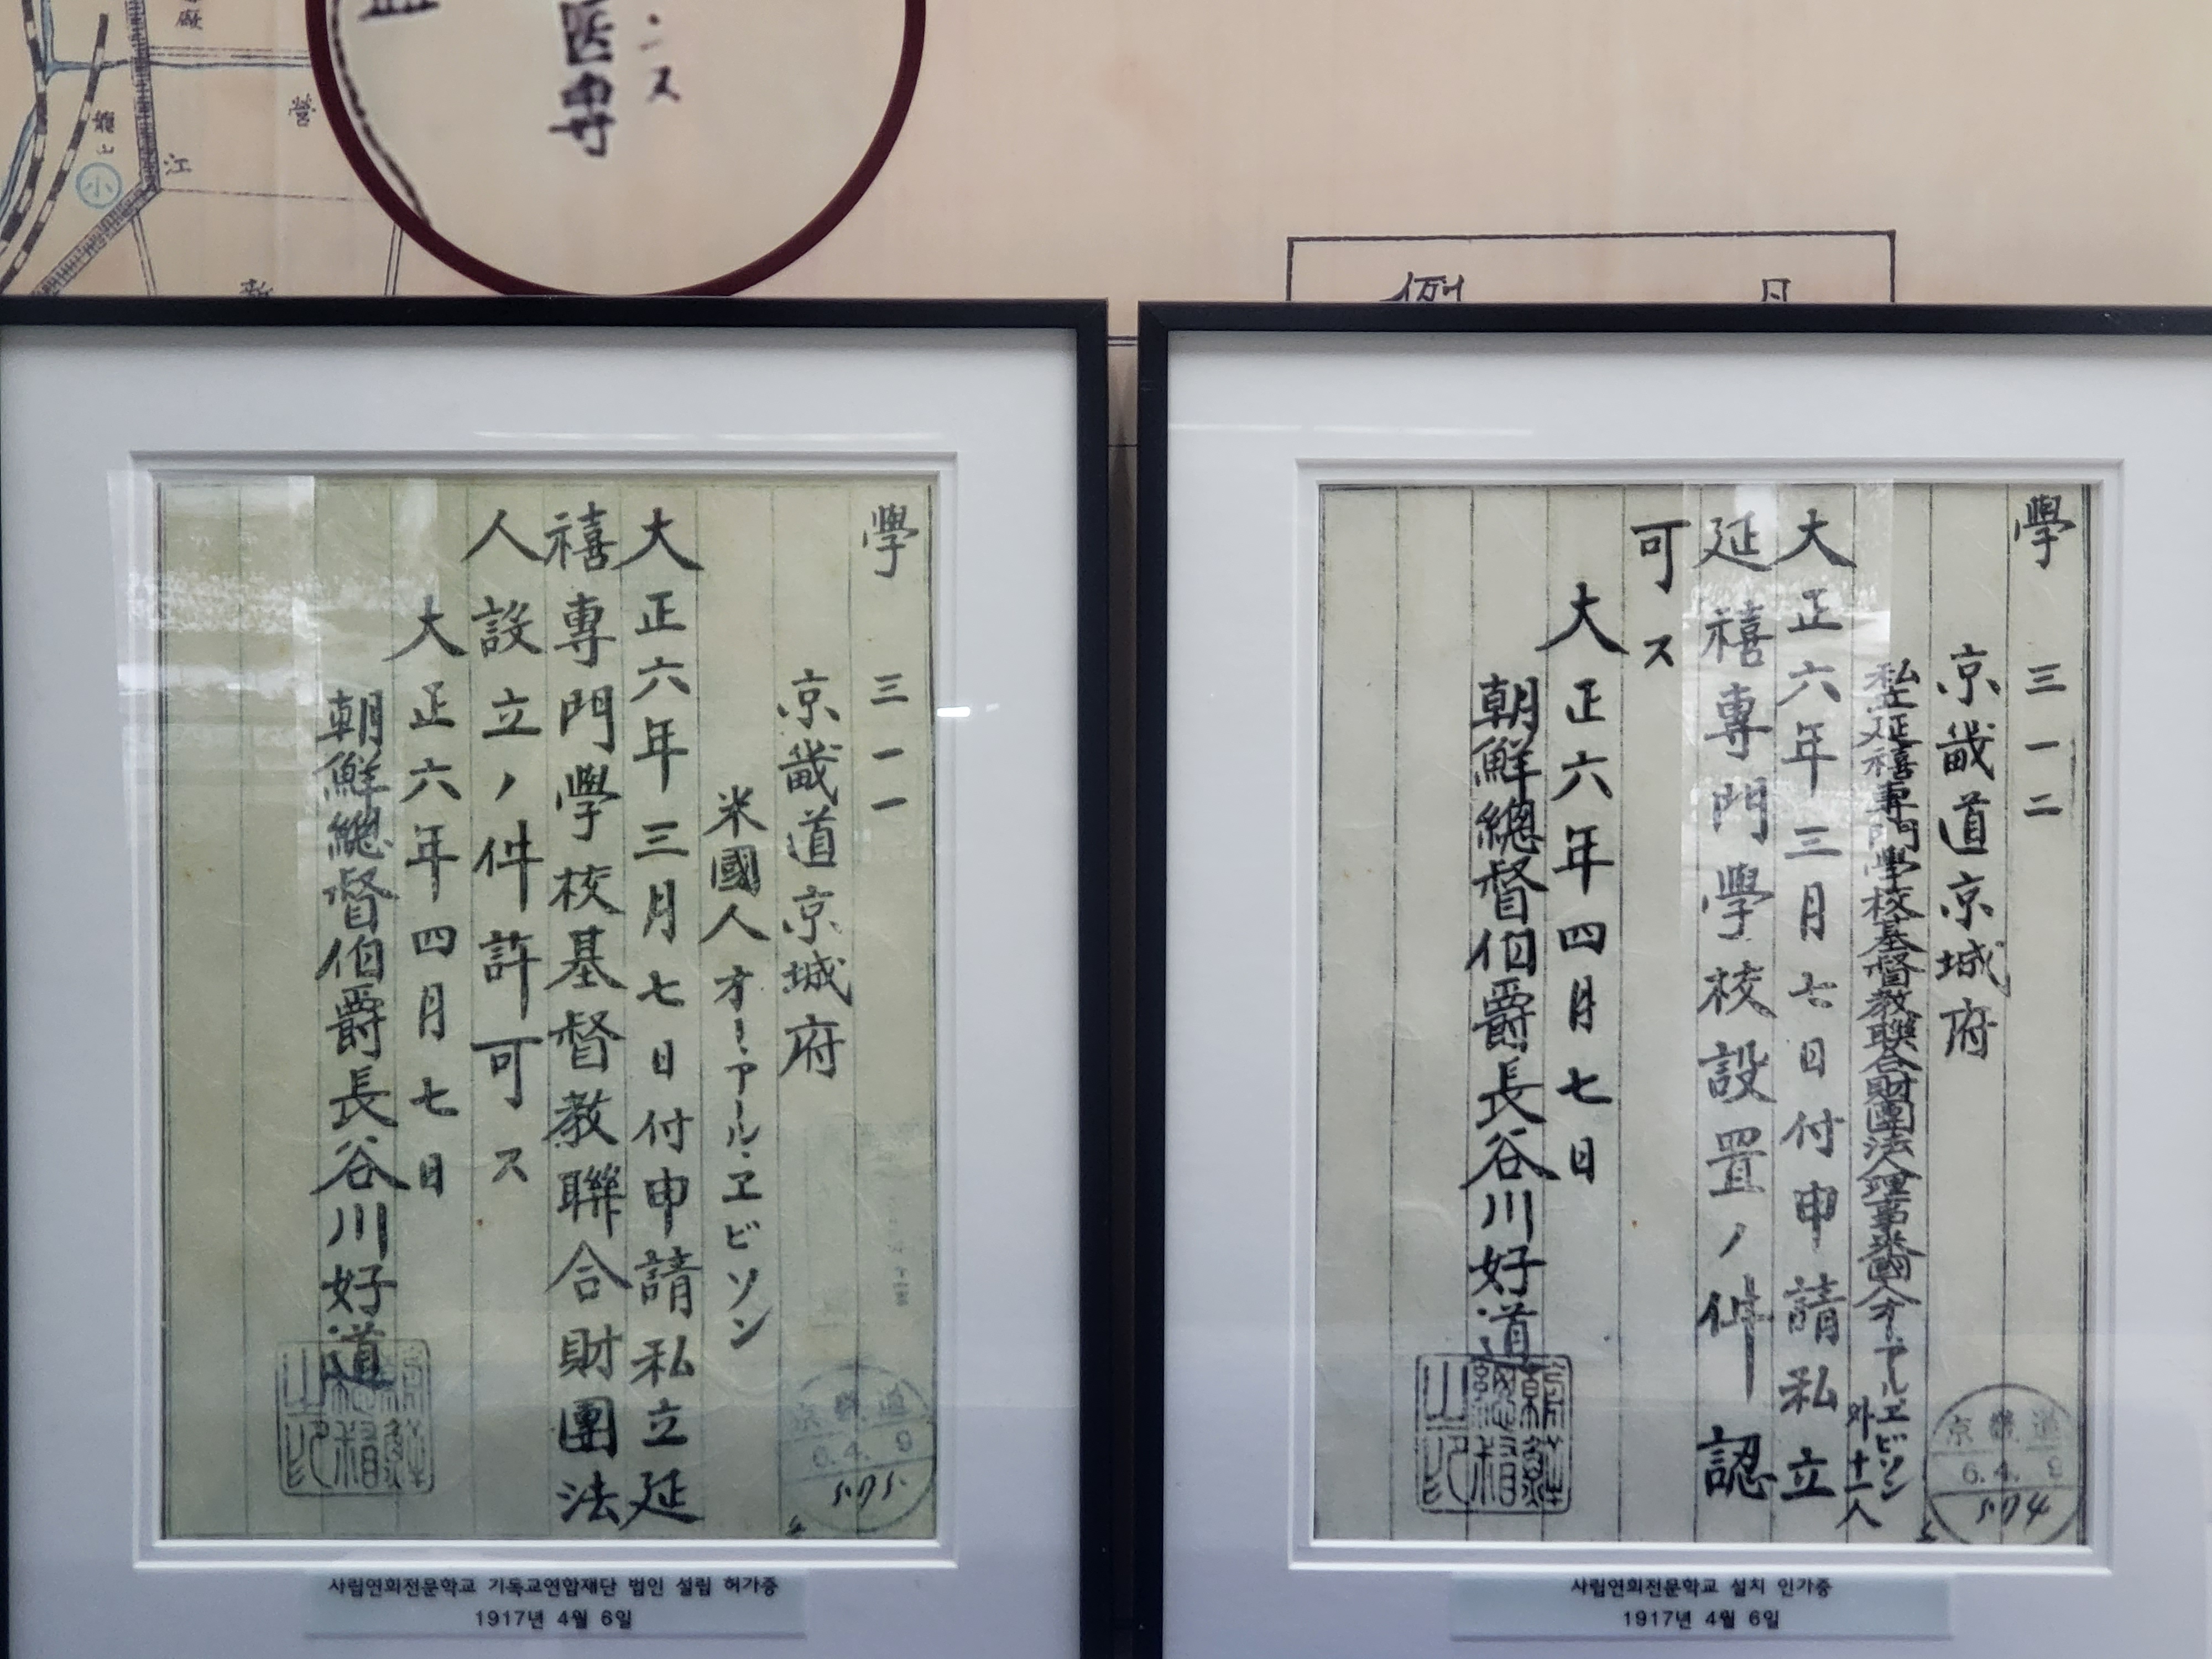 龍山
小
江
營
新
医専
ンス
例
學 三一一
京畿道京城府
米國人オー・アール・ヱビソン
大正六年三月七日付申請私立延
禧專門學校基督教聯合財團法
人設立ノ件許可ス
大正六年四月七日
朝鮮總督伯爵長谷川好道
朝鮮總督之印
京畿道
6.4.9
사립연희전문학교 기독교연합재단 법인 설립 허가증
1917년 4월 6일
學 三一二
京畿道京城府
私立延禧專門學校基督教聯合財團法人理事米國人オー・アール・ヱビソン
外十一人
大正六年三月七日付申請私立
延禧專門學校設置ノ件認
可ス
大正六年四月七日
朝鮮總督伯爵長谷川好道
朝鮮總督之印
京畿道
6.4.9
574
사립연희전문학교 설치 인가증
1917년 4월 6일